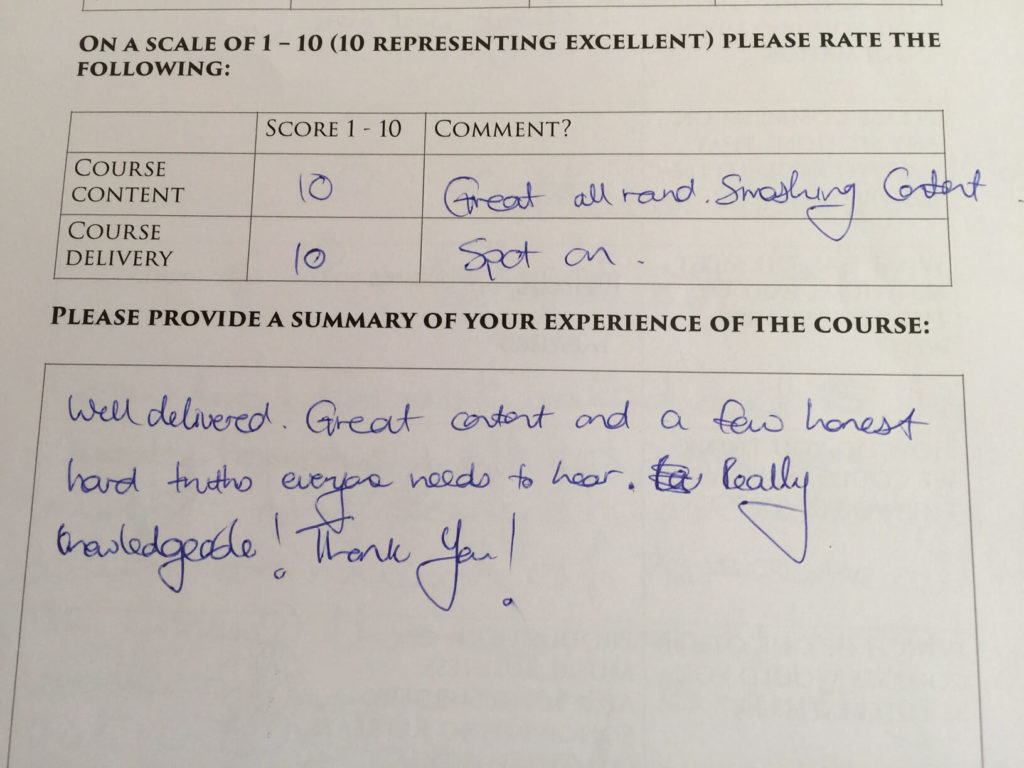 ON A SCALE OF 1 – 10 (10 REPRESENTING EXCELLENT) PLEASE RATE THE
FOLLOWING:
SCORE 1 - 10 COMMENT?
COURSE
CONTENT
10 Great all rand. Smashing Content
COURSE
DELIVERY
10 Spot on.
PLEASE PROVIDE A SUMMARY OF YOUR EXPERIENCE OF THE COURSE:
Well delivered. Great content and a few honest
hard truths everyone needs to hear. Really
knowledgeable! Thank You!